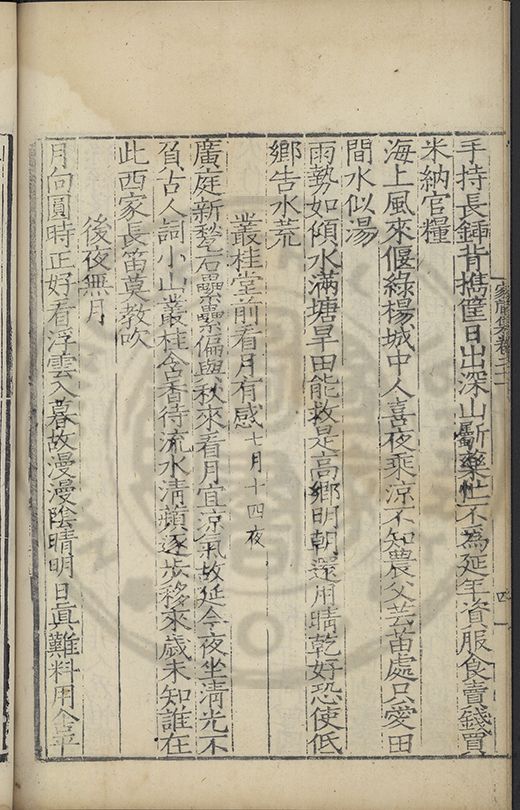 手持長鍤背擕筐日出深山斸藥忙不為延年資服食賣錢買
米納官糧
海上風來偃綠楊城中人喜夜乘涼不知農父芸苗處只愛田
間水似湯
雨勢如傾水滿塘旱田能救是高鄉明朝還用晴乾好恐使低
鄉告水荒
叢桂堂前看月有感七月十四夜
廣庭新甃石纍纍偏與秋來看月宜涼氣故延今夜坐清光不
負古人詞小山叢桂含香待流水清蘋逐步移來歲未知誰在
此西家長笛莫教吹
後夜無月
月向圓時正好看浮雲入暮故漫漫陰晴明日真難料用舍平
家藏集卷二
四